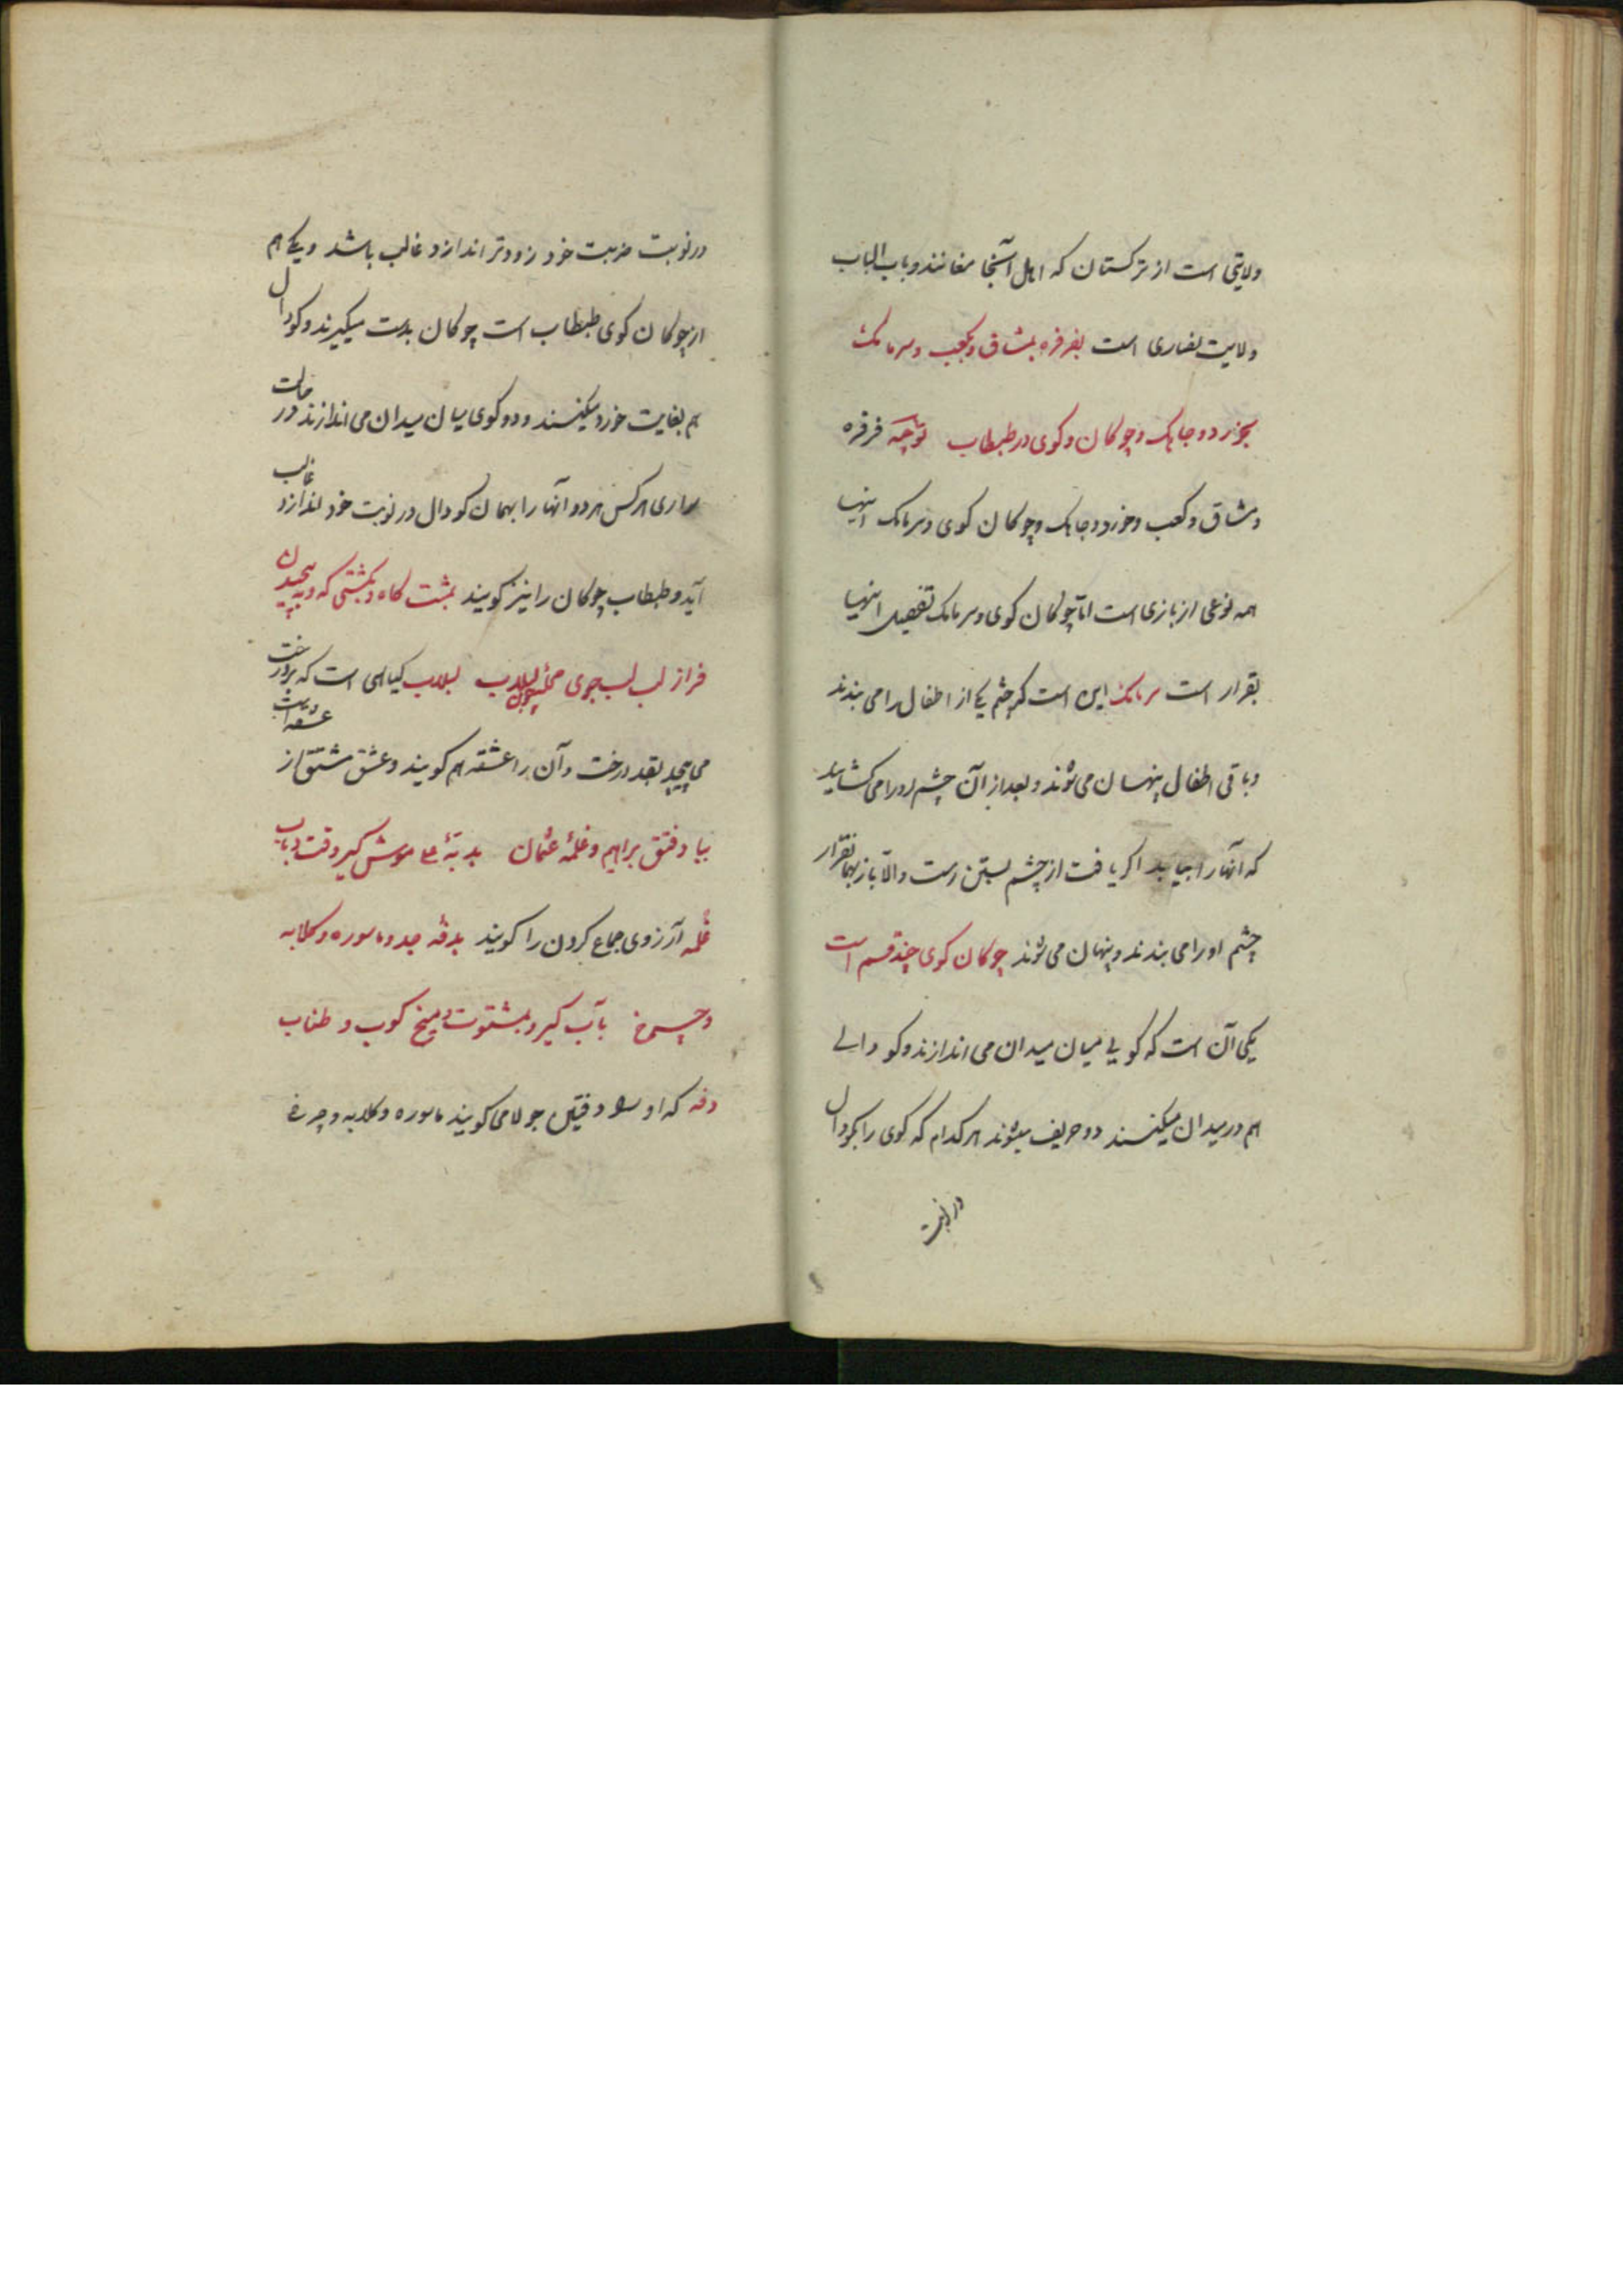 ولایتی است از ترکستان که اهل آنجا مغانند و باب الباب
ولایت نصاری است بفرفره بمشاق و کعب و سرمامک
بجوز دوجابک و چوکان و کوی در طبطاب توجه فرفره
و مشاق و کعب و جوز دوجابک و چوکان کوی و سرمامک اینها
همه نوعی از بازی است اما چوکان کوی و سرمامک تفصیل اینها
بقرار است سرمامک این است که چشم یکی از اطفال را می بندند
و باقی اطفال پنهان می شوند و بعد از آن چشم او را می کشاید
که آنها را بیابد اکر یافت از چشم بستن رست و الا باز بهمانقرار
چشم او را می بندند و پنهان می شوند چوکان کوی چند قسم است
یکی آن است که کویی میان میدان می اندازند و کودالی
هم در میدان میکنند دو حریف میشوند هر کدام که کوی را بکودال
در نوبت
در نوبت ضربت خود زودتر اندازد غالب باشد و یکی هم
از چوکان کوی طبطاب است چوکان بدست میکیرند و کودال
هم بغایت خورد میکنند و دو کوی میان میدان می اندازند در حالت
سواری هر کس هر دو آنها را بهمان کودال در نوبت خود اندازد غالب
آید و طبطاب چوکان را نیز کویند بمشت کاه و بمشتی که و به پیچیدن
فراز لب لب جوی همچون لبلاب لبلاب کیاهی است که بر درخت
می پیچد بقد درخت و آن را عشقه هم کویند و عشق مشتق از عشقه است
بیا و فتق براهیم و غلمهٔ عثمان بدبتهٔ موش کیر وقت دباب
غلمه آرزوی جماع کردن را کویند بدفه جد و ماسوره و کلابه
و چرخ بآب کیر و بمشتوت و میخ کوب و طناب
دفه که او را دفتین جولا می کویند ماسوره و کلابه و چرخ